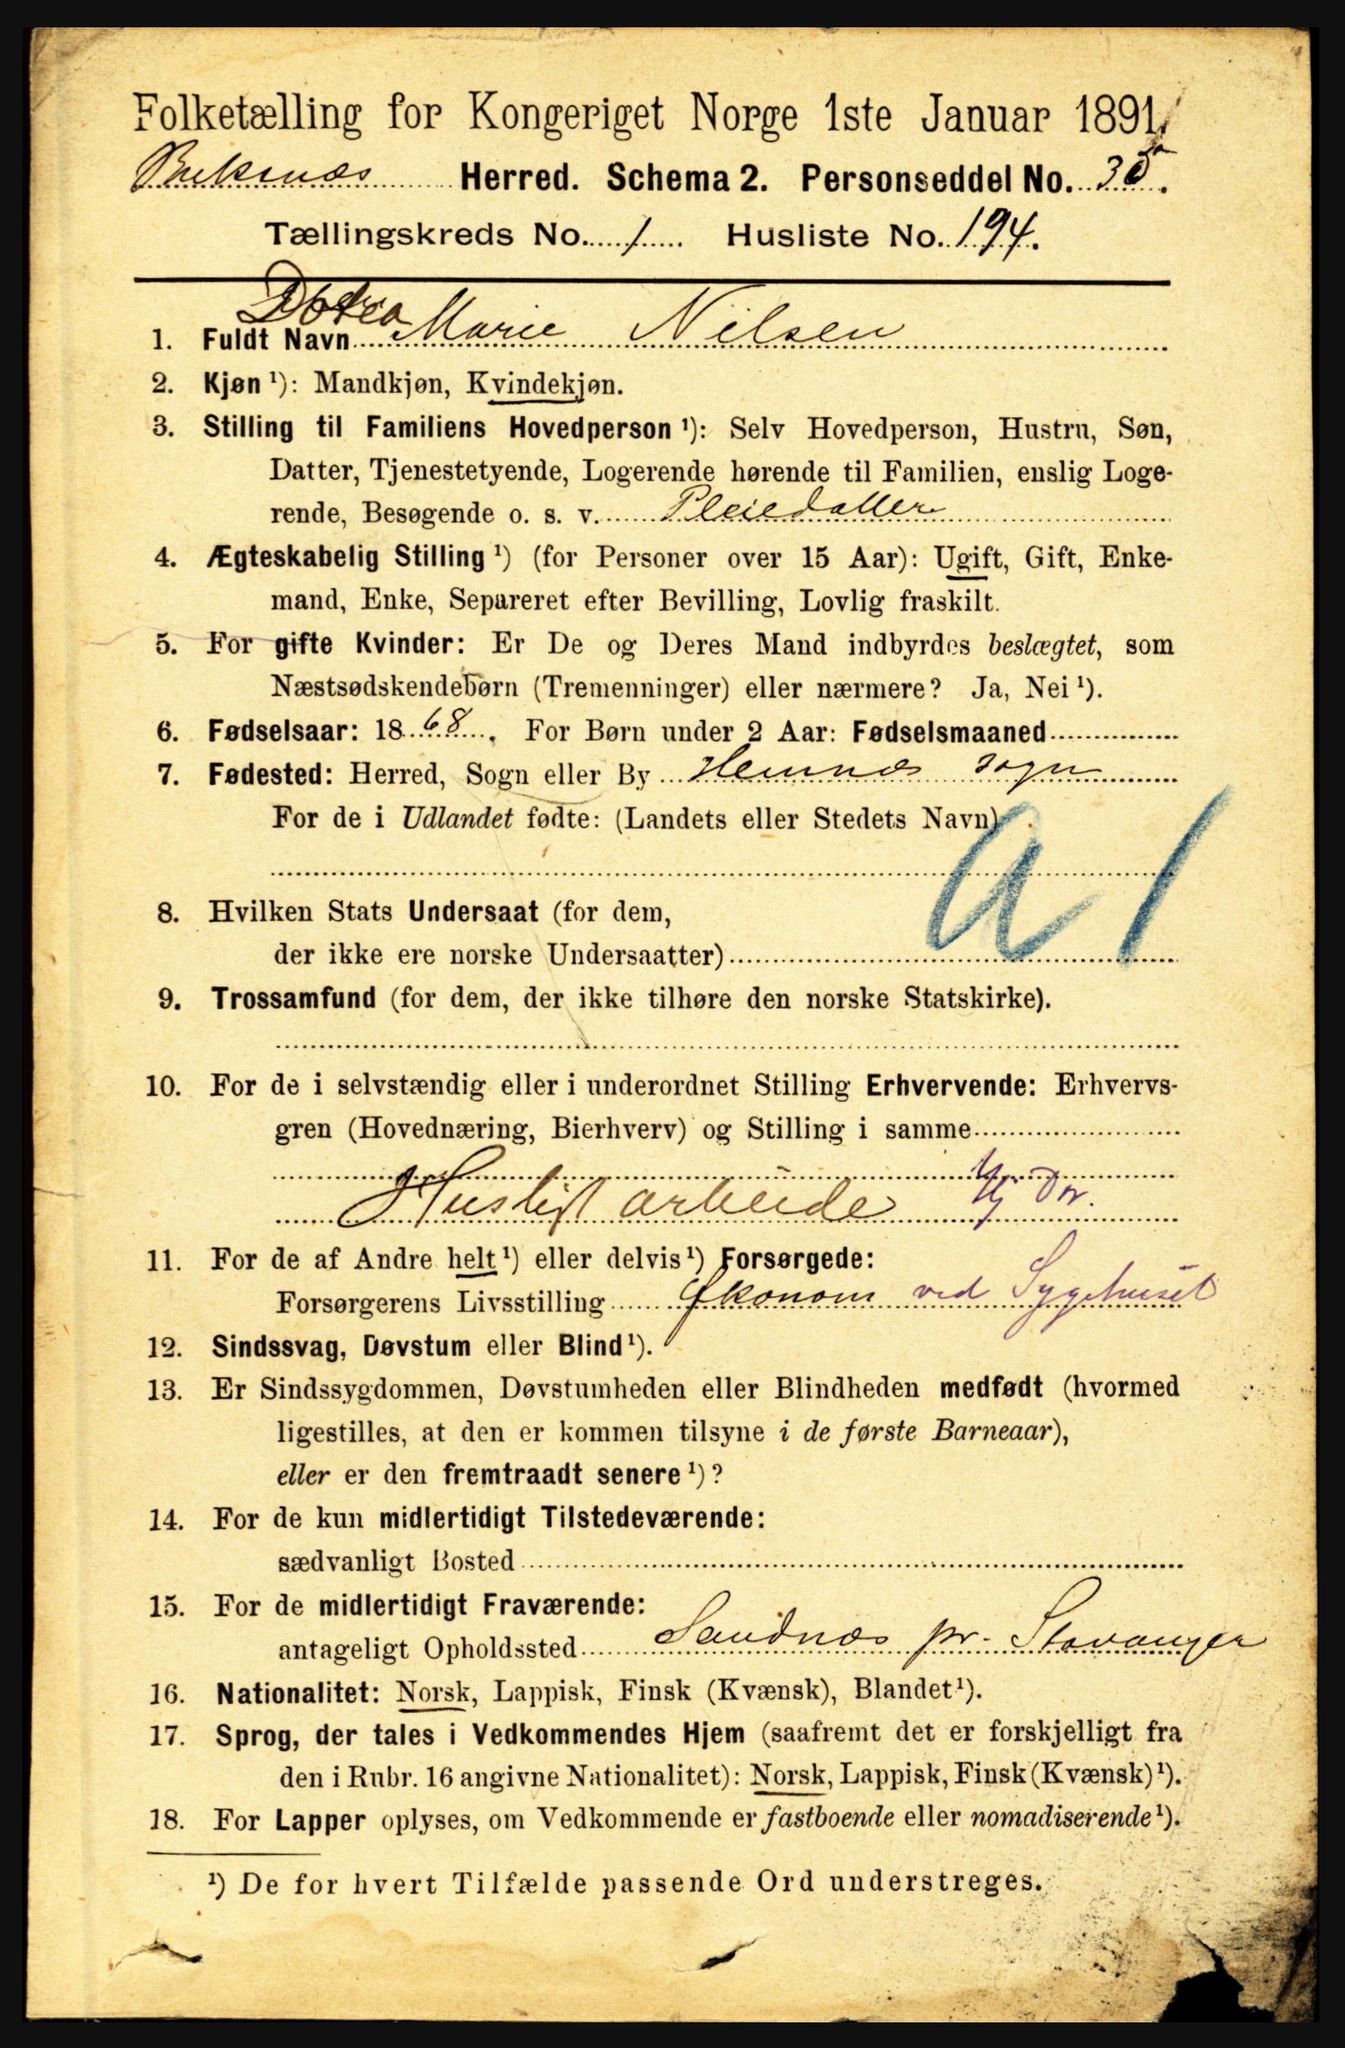 Folketælling for Kongeriget Norge 1ste Januar 1891.
Buksnæs Herred. Schema 2. Personseddel No.
Tællingskreds No. 1 Husliste No. 194.
Dotea
1. Fuldt Navn Marie Nilsen
2. Kjøn ¹): Mandkjøn, Kvindekjøn.
3. Stilling til Familiens Hovedperson ¹): Selv Hovedperson, Hustru, Søn,
Datter, Tjenestetyende, Logerende hørende til Familien, enslig Loge-
rende, Besøgende o. s. v. Pleiedatter
4. Ægteskabelig Stilling ¹) (for Personer over 15 Aar): Ugift, Gift, Enke-
mand, Enke, Separeret efter Bevilling, Lovlig fraskilt.
5. For gifte Kvinder: Er De og Deres Mand indbyrdes beslægtet, som
Næstsødskendebørn (Tremenninger) eller nærmere? Ja, Nei ¹).
6. Fødselsaar: 1868. For Børn under 2 Aar: Fødselsmaaned
7. Fødested: Herred, Sogn eller By Hemnæs Sogn
For de i Udlandet fødte: (Landets eller Stedets Navn)
a 1
8. Hvilken Stats Undersaat (for dem,
der ikke ere norske Undersaatter)
9. Trossamfund (for dem, der ikke tilhøre den norske Statskirke).
10. For de i selvstændig eller i underordnet Stilling Erhvervende: Erhvervs-
gren (Hovednæring, Bierhverv) og Stilling i samme
Husligt arbeide
11. For de af Andre helt ¹) eller delvis ¹) Forsørgede:
Forsørgerens Livsstilling Økonom ved Sygehuset
12. Sindssvag, Døvstum eller Blind ¹).
13. Er Sindssygdommen, Døvstumheden eller Blindheden medfødt (hvormed
ligestilles, at den er kommen tilsyne i de første Barneaar),
eller er den fremtraadt senere ¹)?
14. For de kun midlertidigt Tilstedeværende:
sædvanligt Bosted
15. For de midlertidigt Fraværende:
antageligt Opholdssted Sandnæs pr. Stavanger
16. Nationalitet: Norsk, Lappisk, Finsk (Kvænsk), Blandet ¹).
17. Sprog, der tales i Vedkommendes Hjem (saafremt det er forskjelligt fra
den i Rubr. 16 angivne Nationalitet): Norsk, Lappisk, Finsk (Kvænsk) ¹).
18. For Lapper oplyses, om Vedkommende er fastboende eller nomadiserende ¹).
¹) De for hvert Tilfælde passende Ord understreges.